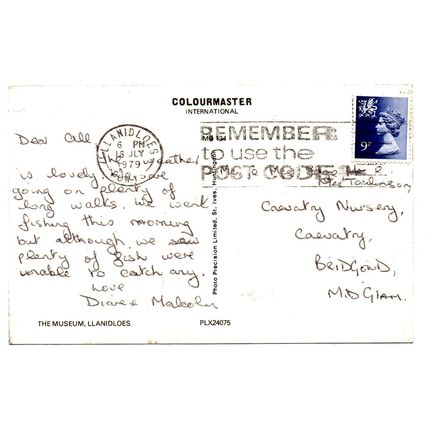 COLOURMASTER
INTERNATIONAL
LLANIDLOES
6 PM
16 JLY
1979
REMEMBER
to use the
POST CODE
9P
Dear All
The weather
is lovely
going on plenty of
long walks. We went
fishing this morning
but although we saw
plenty of fish were
unable to catch any.
Love
Diane & Malcolm
Photo Precision Limited, St. Ives, Huntingdon
Tomlinson,
Coevatry Nursery,
Coevatry,
BRIDGOND,
M.D GLAM.
THE MUSEUM, LLANIDLOES
PLX24075